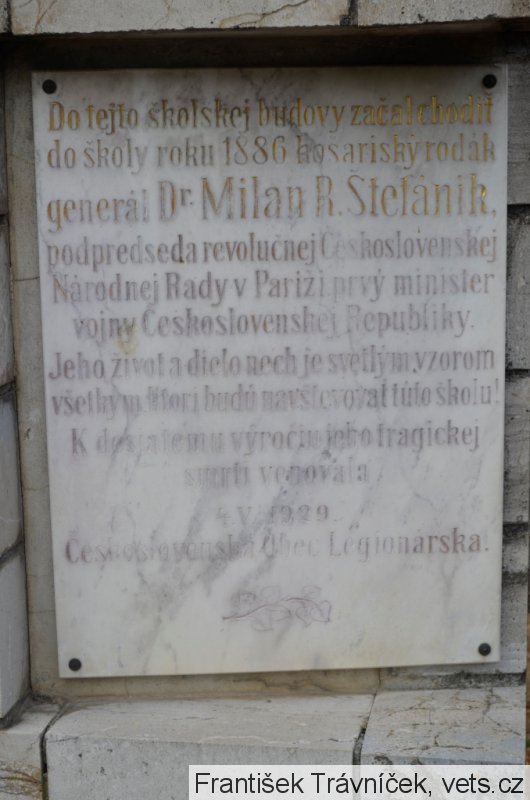 Do tejto školskej budovy začal chodiť
do školy roku 1886 kosariský rodák
generál Dr. Milan R. Štefánik,
podpredseda revolučnej Československej
Národnej Rady v Paríži prvý minister
vojny Československej Republiky.
Jeho život a dielo nech je svetlým vzorom
všetkým, ktorí budú navštevovať túto školu!
K desiatemu výročiu jeho tragickej
smrti venovala
4.V. 1929.
Československá Obec Legionárska.
František Trávníček, vets.cz